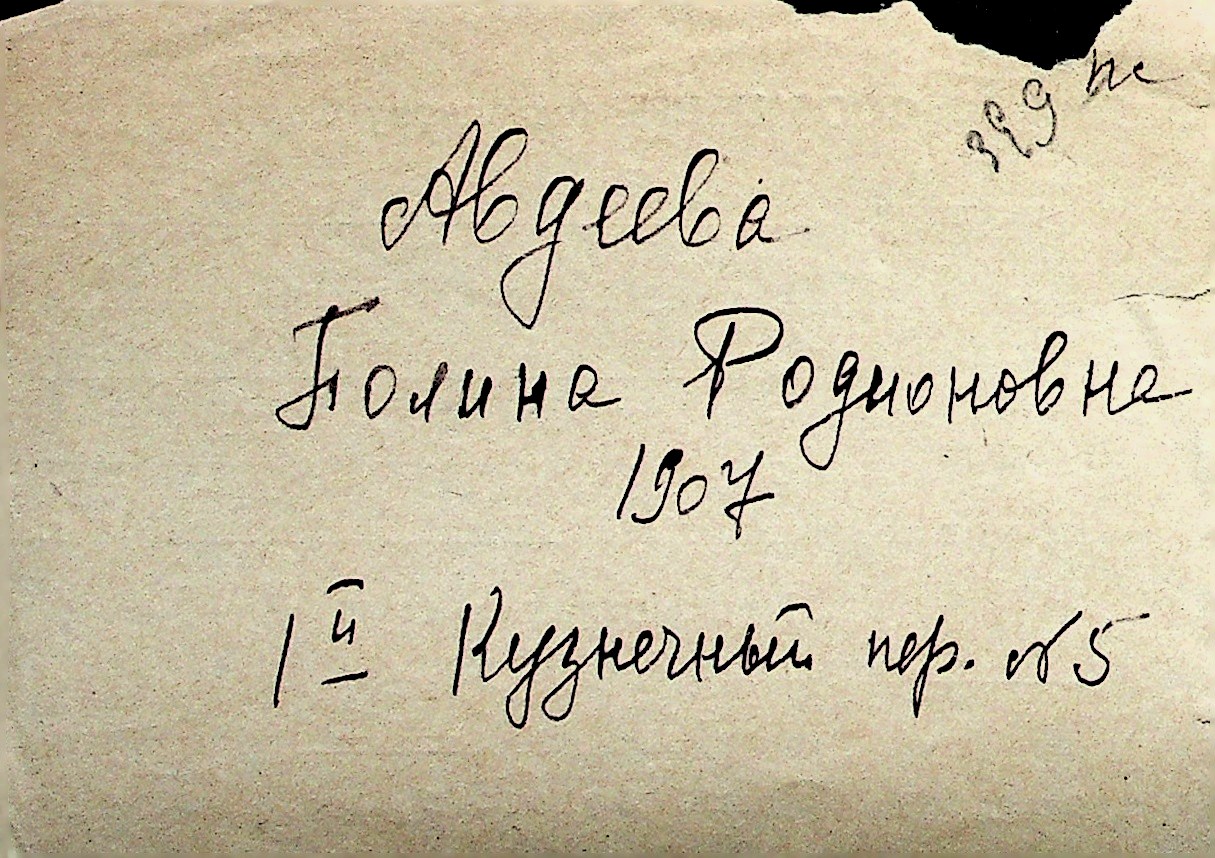 Авдеева
Полина Родионовна
1907
1й Кузнечный пер. №5